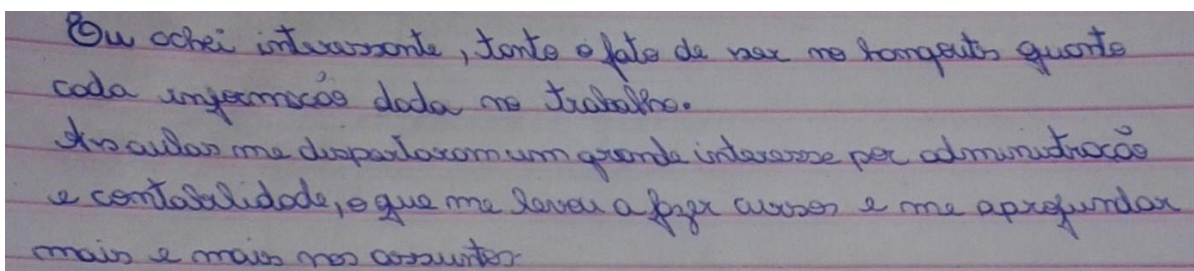 Eu achei interessante, tanto o fato de ser no tangente quanto
cada informação dada no trabalho.
As aulas me despertaram um grande interesse por administração
e contabilidade, o que me levou a fazer cursos e me aprofundar
mais e mais nos assuntos.